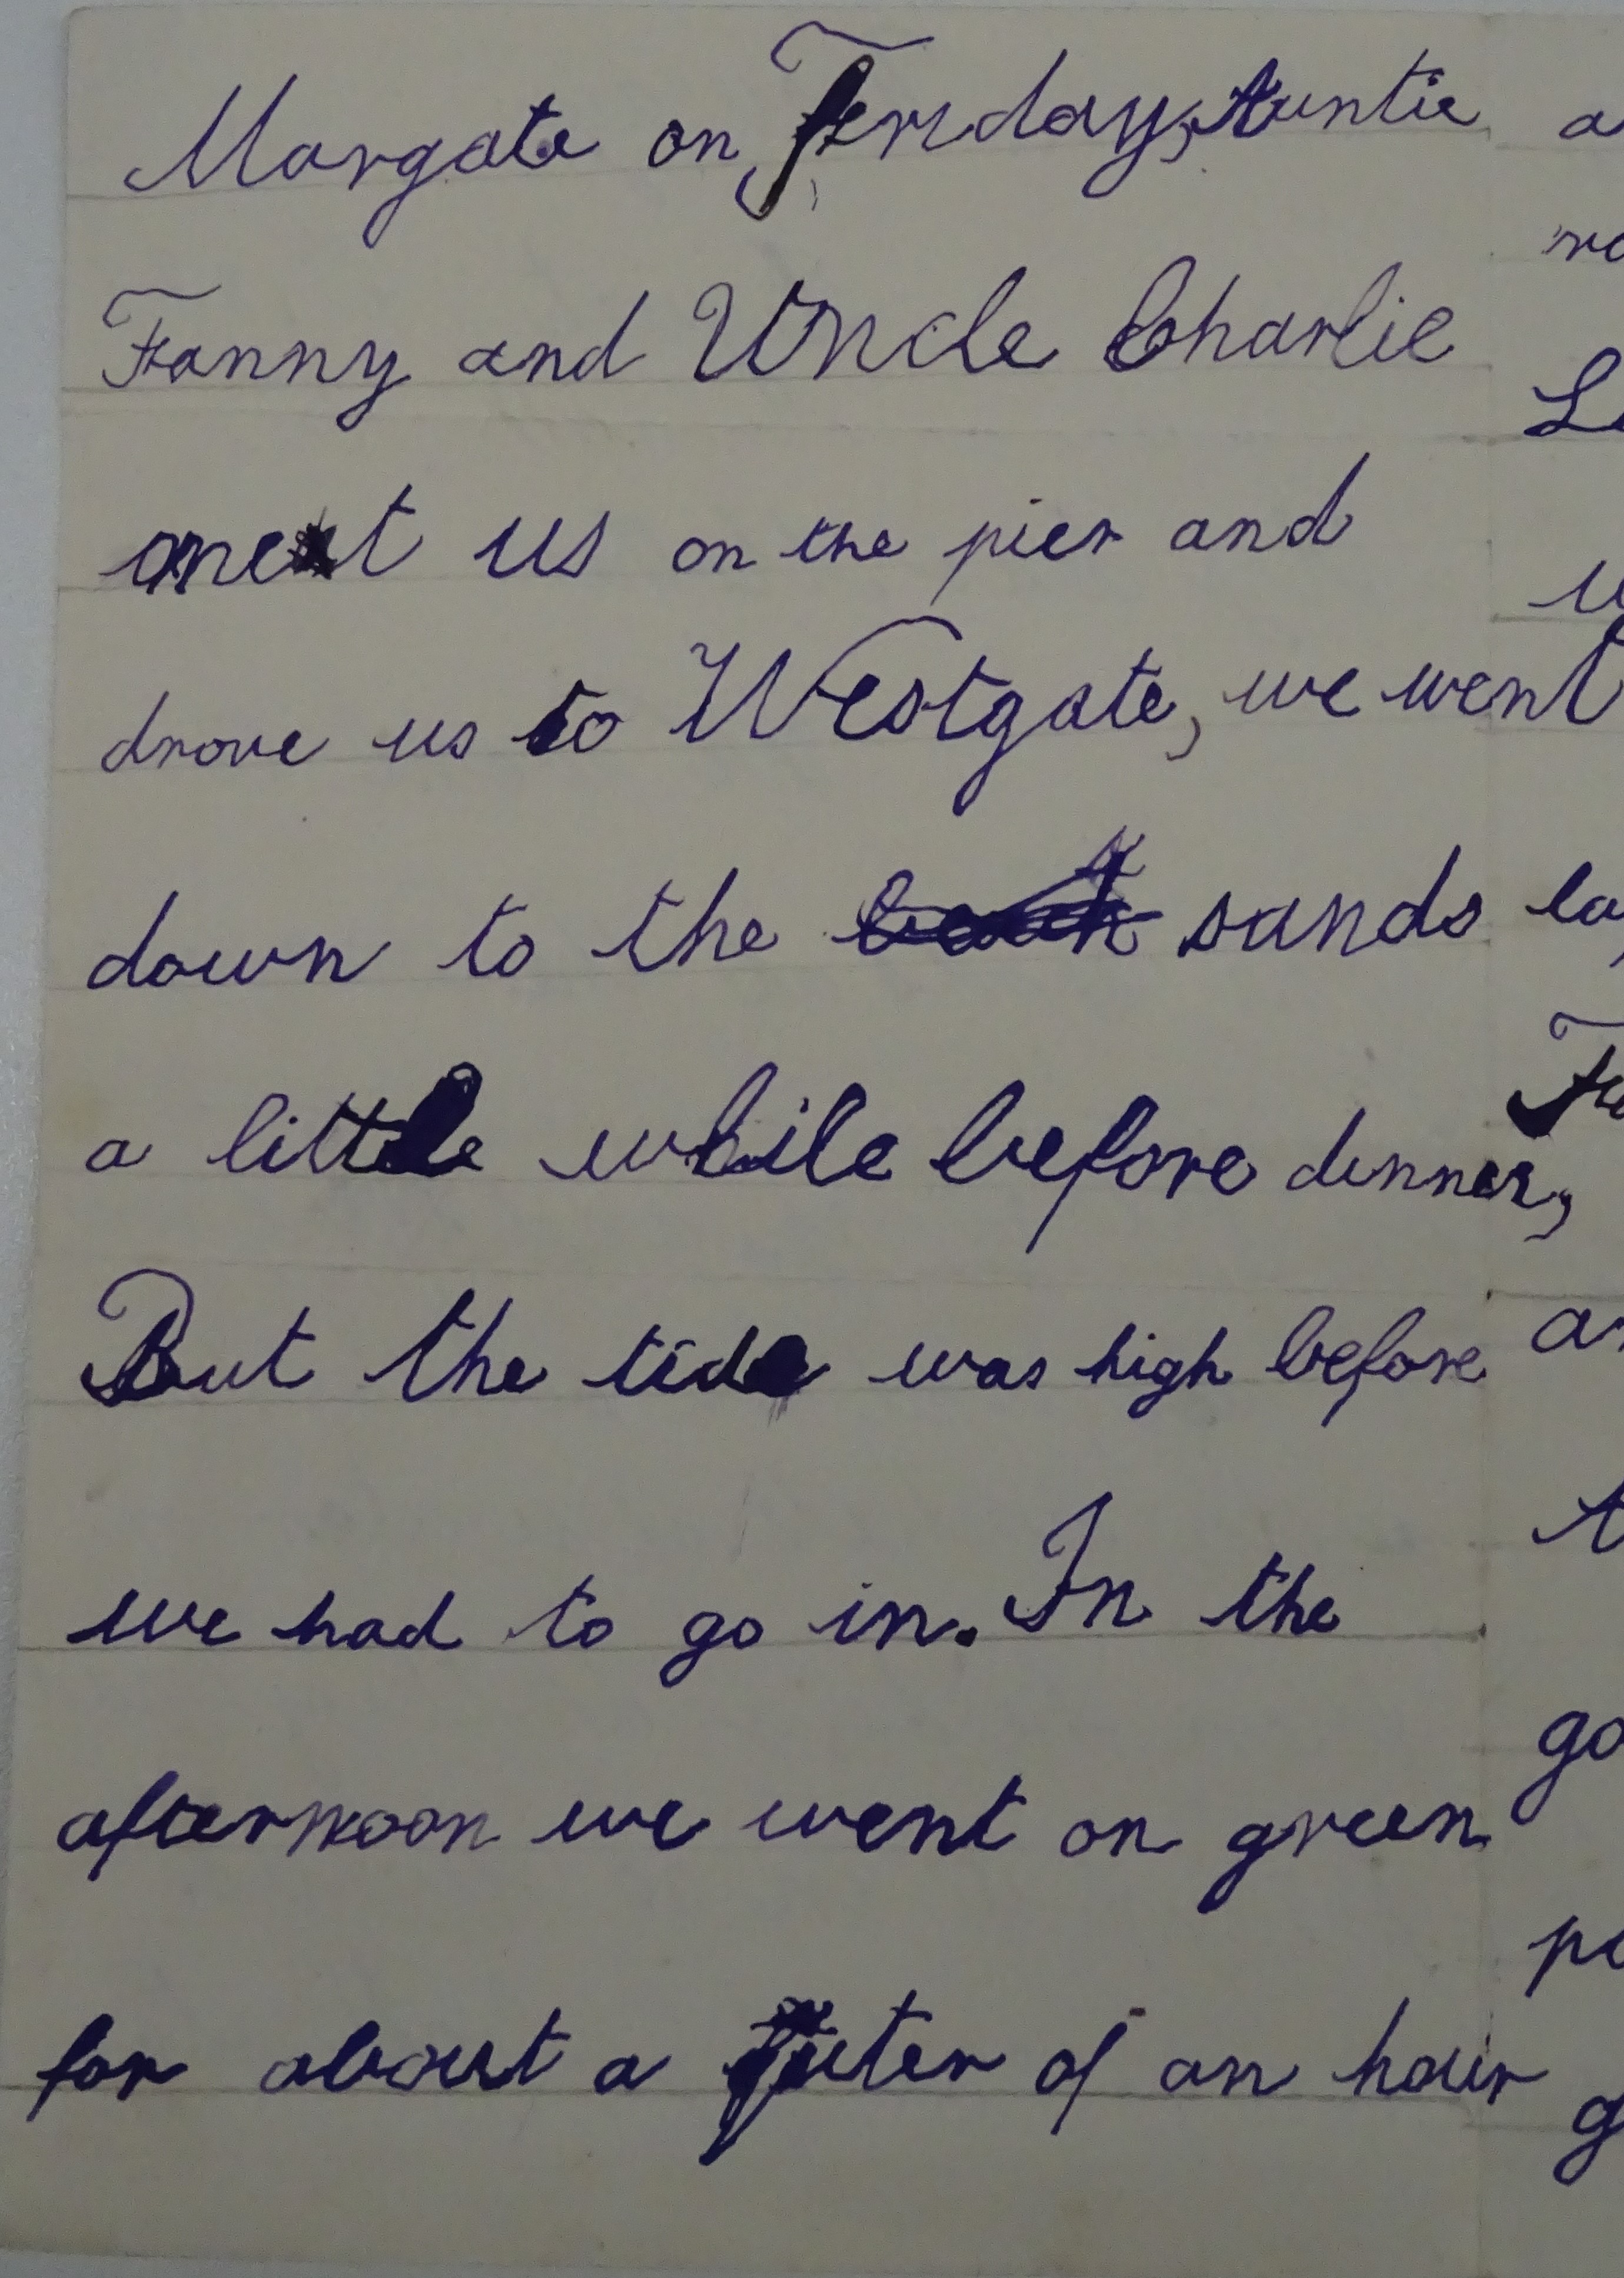 Margate on Ferday, Auntie
Fanny and Uncle Charlie
met us on the pier and
drove us to Westgate, we went
down to the sands
a little while before dinner,
But the tide was high before
we had to go in. In the
afternoon we went on green
for about a quter of an hour